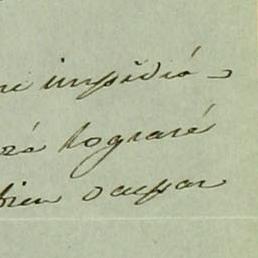 me impidió
zá lograré
bien ocupar